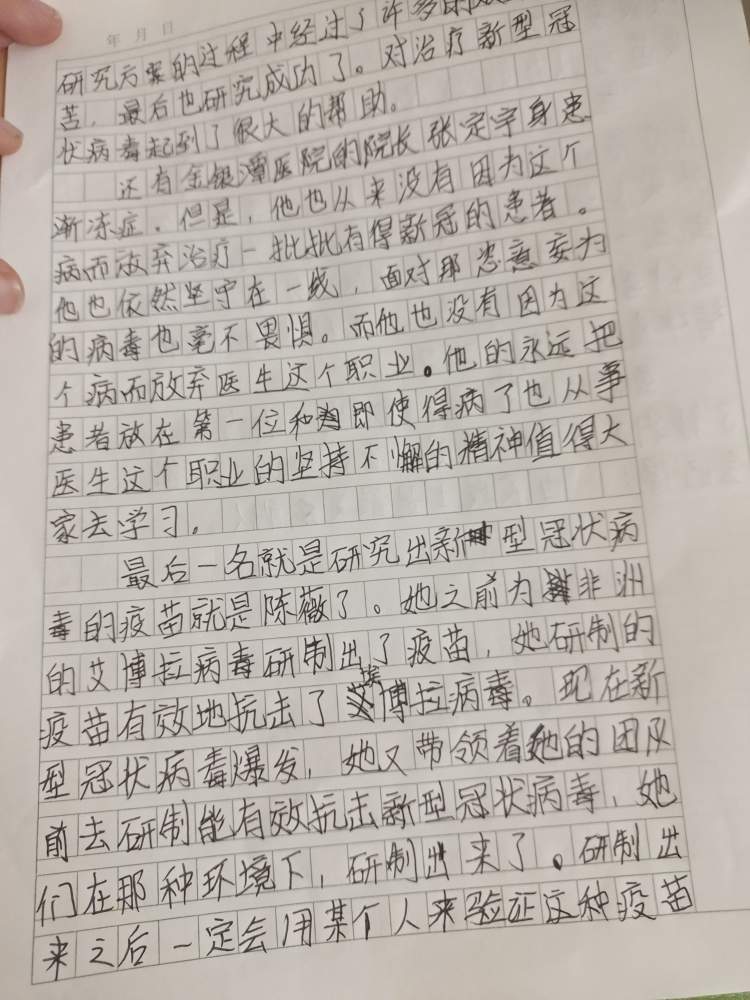 年 月 日
研究方案的过程中经过了许多的
苦，最后也研究成功了。对治疗新型冠
状病毒起到了很大的帮助。
还有金银潭医院的院长张定宇身患
渐冻症。但是，他也从来没有因为这个
病而放弃治疗一批批有得新冠的患者。
他也依然坚守在一线，面对那恣意妄为
的病毒也毫不畏惧。而他也没有因为这
个病而放弃医生这个职业。他的永远把
患者放在第一位和即使得病了也从事
医生这个职业的坚持不懈的精神值得大
家去学习。
最后一名就是研究出新型冠状病
毒的疫苗就是陈薇了。她之前为非洲
的艾博拉病毒研制出了疫苗，她研制的
疫苗有效地抗击了埃博拉病毒。现在新
型冠状病毒爆发，她又带领着她的团队
前去研制能有效抗击新型冠状病毒，她
们在那种环境下，研制出来了。研制出
来之后一定会用某个人来验证这种疫苗